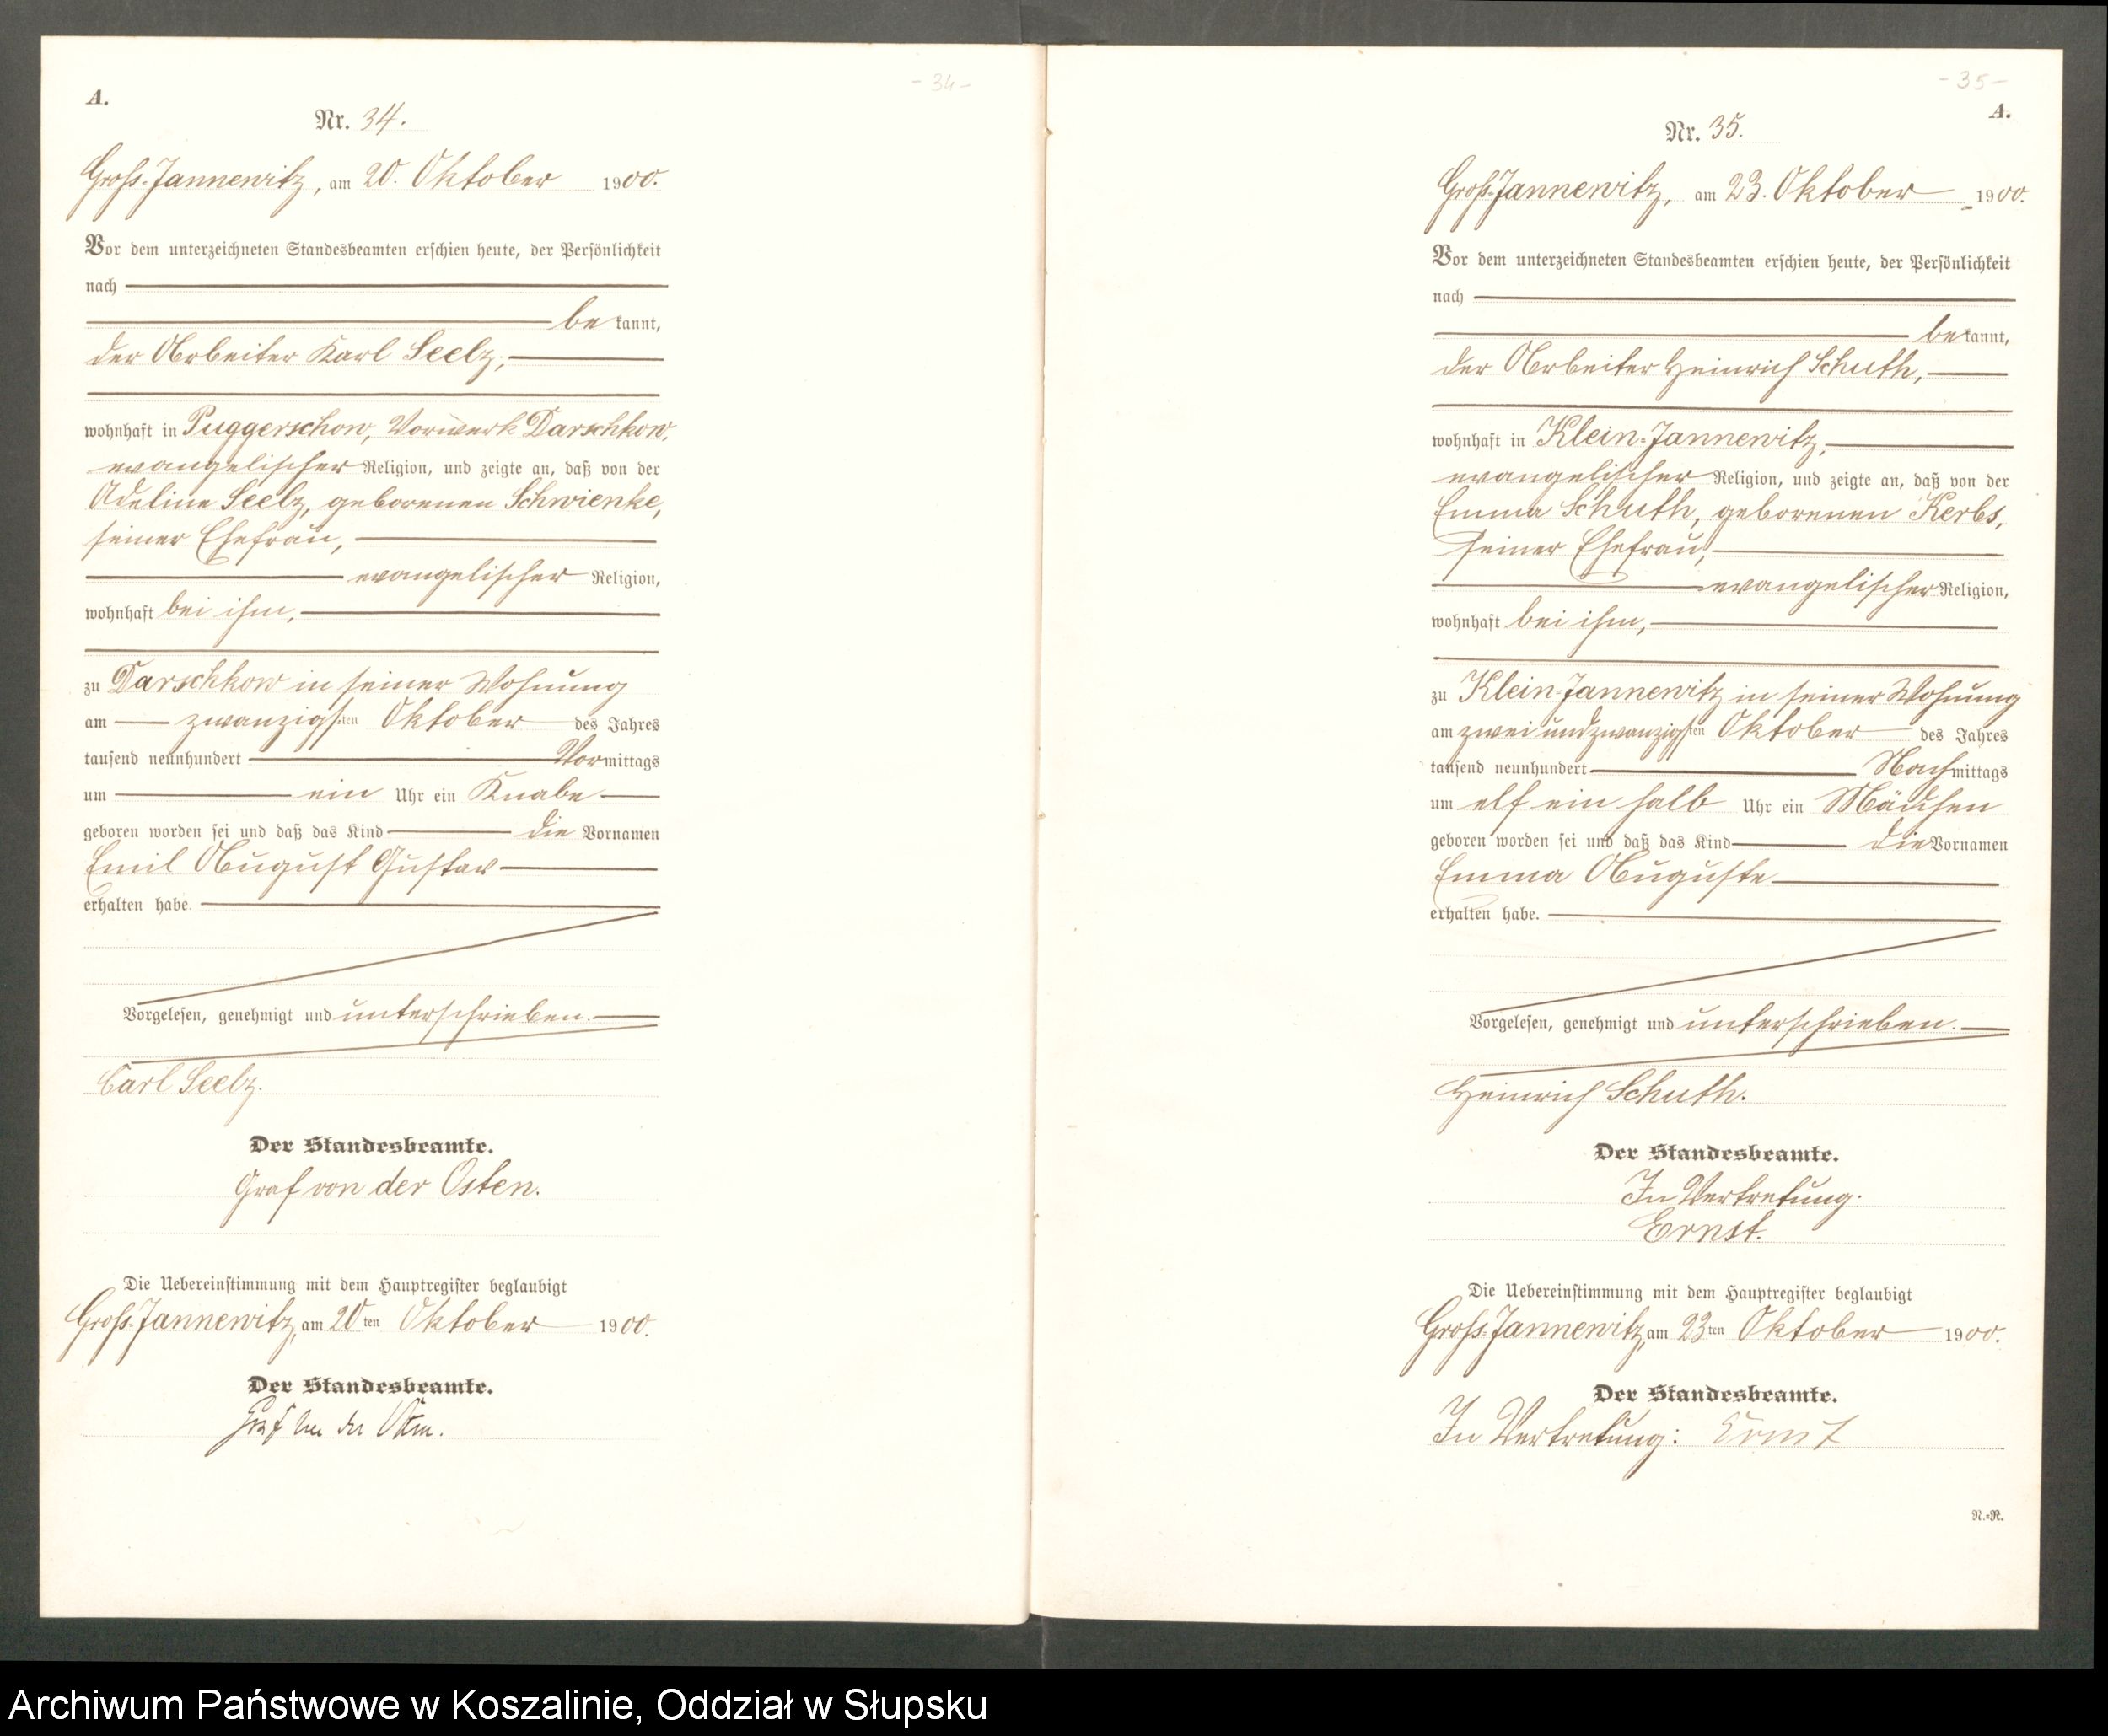 - 34 -
A.
Nr. 34.
Groß-Jannewitz, am 20. Oktober 1900.
Vor dem unterzeichneten Standesbeamten erschien heute, der Persönlichkeit
nach
bekannt,
der Arbeiter Karl Seelz,
wohnhaft in Puggerschow, Vorwerk Darschkow,
evangelischer Religion, und zeigte an, daß von der
Adeline Seelz, geborenen Schwienke,
seiner Ehefrau,
evangelischer Religion,
wohnhaft bei ihm,
zu Darschkow in seiner Wohnung
am zwanzigsten Oktober des Jahres
tausend neunhundert Vormittags
um ein Uhr ein Knabe
geboren worden sei und daß das Kind die Vornamen
Emil August Gustav
erhalten habe.
Vorgelesen, genehmigt und unterschrieben.
Carl Seelz.
Der Standesbeamte.
Graf von der Osten.
Die Uebereinstimmung mit dem Hauptregister beglaubigt
Groß-Jannewitz, am 20ten Oktober 1900.
Der Standesbeamte.
Graf von der Osten.
- 35 -
A.
Nr. 35.
Groß-Jannewitz, am 23. Oktober 1900.
Vor dem unterzeichneten Standesbeamten erschien heute, der Persönlichkeit
nach
bekannt,
der Arbeiter Heinrich Schuth,
wohnhaft in Klein-Jannewitz,
evangelischer Religion, und zeigte an, daß von der
Emma Schuth, geborenen Kerbs,
seiner Ehefrau,
evangelischer Religion,
wohnhaft bei ihm,
zu Klein-Jannewitz in seiner Wohnung
am zwei und zwanzigsten Oktober des Jahres
tausend neunhundert Nachmittags
um elf ein halb Uhr ein Mädchen
geboren worden sei und daß das Kind die Vornamen
Emma Auguste
erhalten habe.
Vorgelesen, genehmigt und unterschrieben.
Heinrich Schuth.
Der Standesbeamte.
In Vertretung.
Ernst.
Die Uebereinstimmung mit dem Hauptregister beglaubigt
Groß-Jannewitz, am 23ten Oktober 1900.
Der Standesbeamte.
In Vertretung: Ernst
N.=R.
Archiwum Państwowe w Koszalinie, Oddział w Słupsku